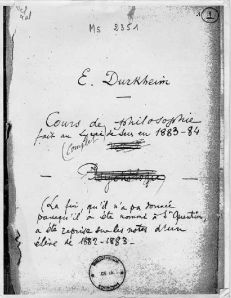 Ms 2351
1
E. Durkheim
Cours de philosophie
fait au Lycée de Sens en 1883-84
(Complet)
(La fin, qu'il n'a pas donnée
parce qu'il a été nommé à St Quentin,
a été reprise sur les notes d'un
élève de 1882-1883-